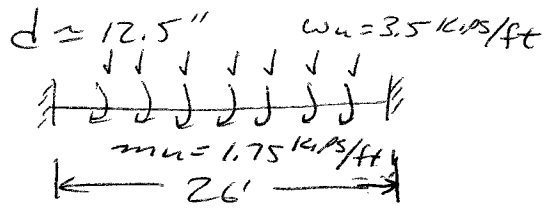 d ≃ 12.5" wu = 3.5 Kips/ft
mu = 1.75 Kips/ft
26'